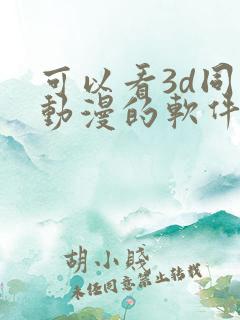 可以看3d同
動漫的軟件
胡小賤
未經同意禁止轉載